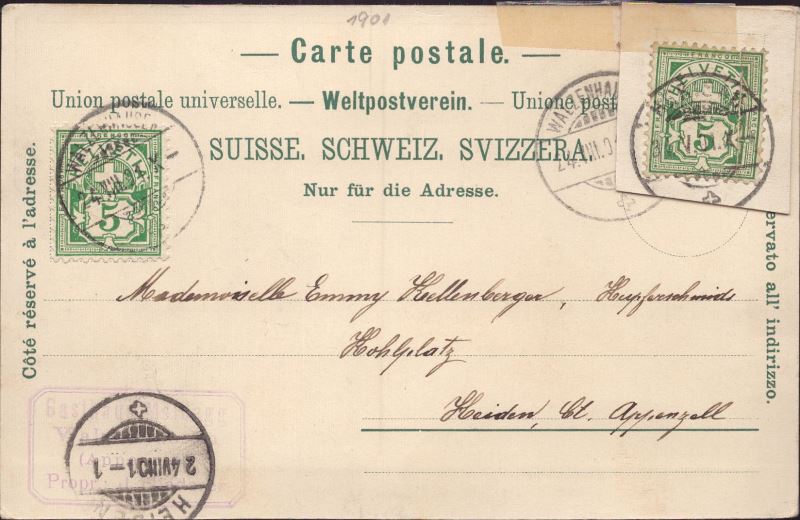 1901
— Carte postale. —
Union postale universelle. — Weltpostverein. — Unione post
SUISSE. SCHWEIZ. SVIZZERA
Nur für die Adresse.
Côté réservé à l'adresse.
ervato all' indirizzo.
HELVETIA
FRANCO
5
HELVETIA
FRANCO
5
WALZENHAU
24.VIII.01
Mademoiselle Emmy Kellenberger, Kupferschmids
Kohlplatz
Heiden, Ct. Appenzell
Gasthaus
(App
Propr.
24 VIII 01 - 1
HEIDEN